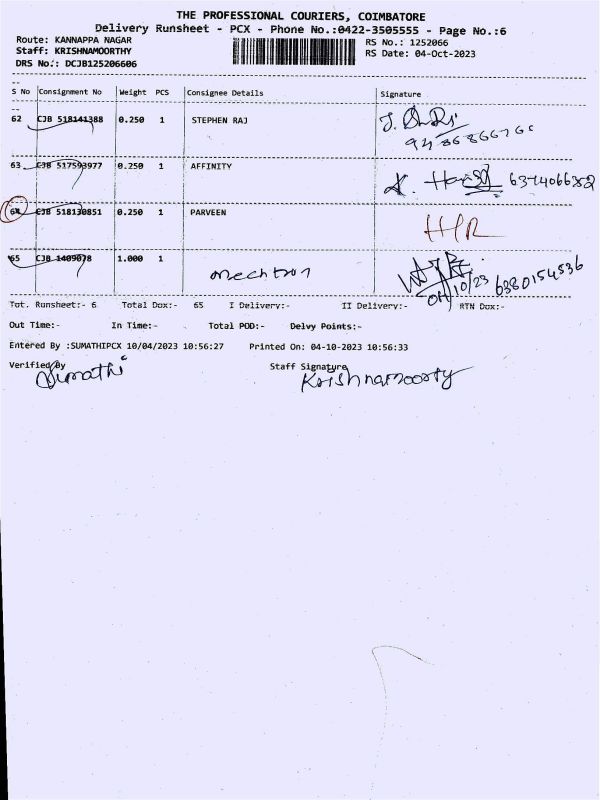 THE PROFESSIONAL COURIERS, COIMBATORE
Delivery Runsheet - PCX - Phone No.:0422-3505555 - Page No.:6
Route: KANNAPPA NAGAR RS No.: 1252066
Staff: KRISHNAMOORTHY RS Date: 04-Oct-2023
DRS No.: DCJB125206606
S No Consignment No Weight PCS Consignee Details Signature
62 CJB 518141388 0.250 1 STEPHEN RAJ
63 CJB 517593977 0.250 1 AFFINITY 6374066382
64 CJB 518130851 0.250 1 PARVEEN
65 CJB 1409078 1.000 1 Mechtron
04/10/23 6380154536
Tot. Runsheet:- 6 Total Dox:- 65 I Delivery:- II Delivery:- RTN Dox:-
Out Time:- In Time:- Total POD:- Delvy Points:-
Entered By :SUMATHIPCX 10/04/2023 10:56:27 Printed On: 04-10-2023 10:56:33
Verified By Staff Signature
Sumathi Krishnamoorty